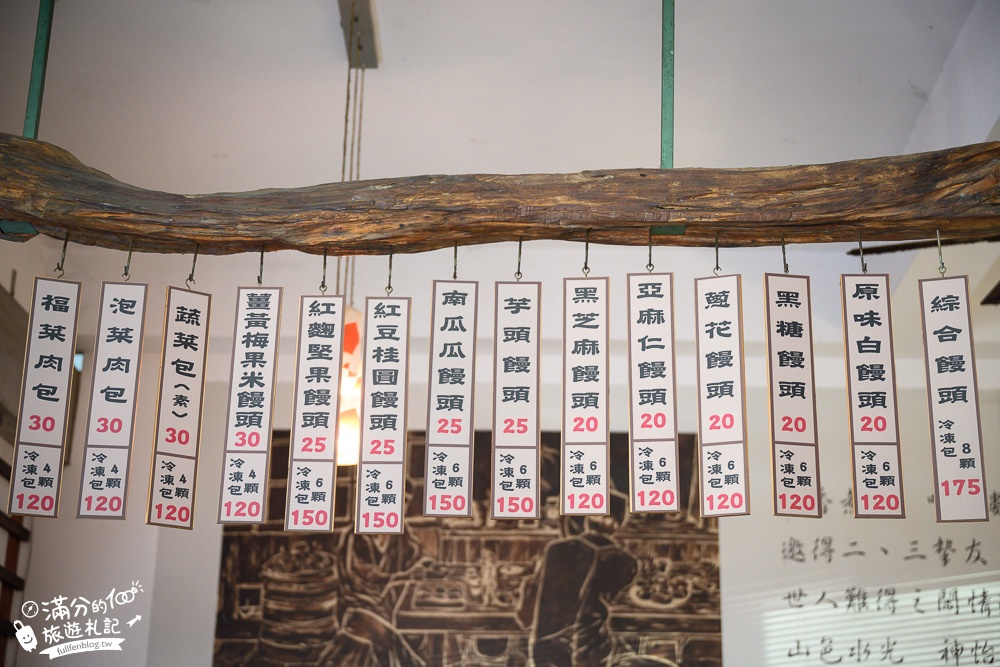 福菜肉包 30
冷凍包 4顆 120
泡菜肉包 30
冷凍包 4顆 120
蔬菜包(素) 30
冷凍包 4顆 120
薑黃梅果米饅頭 30
冷凍包 4顆 120
紅麴堅果饅頭 25
冷凍包 6顆 150
紅豆桂圓饅頭 25
冷凍包 6顆 150
南瓜瓜饅頭 25
冷凍包 6顆 150
芋頭饅頭 25
冷凍包 6顆 150
黑芝麻饅頭 20
冷凍包 6顆 120
亞麻仁饅頭 20
冷凍包 6顆 120
蔥花饅頭 20
冷凍包 6顆 120
黑糖饅頭 20
冷凍包 6顆 120
原味白饅頭 20
冷凍包 6顆 120
綜合饅頭
冷凍包 8顆 175
邀得二、三摯友
世人難得之閑情
山色水光 神怡
滿分的
旅遊札記
fullfenblog.tw